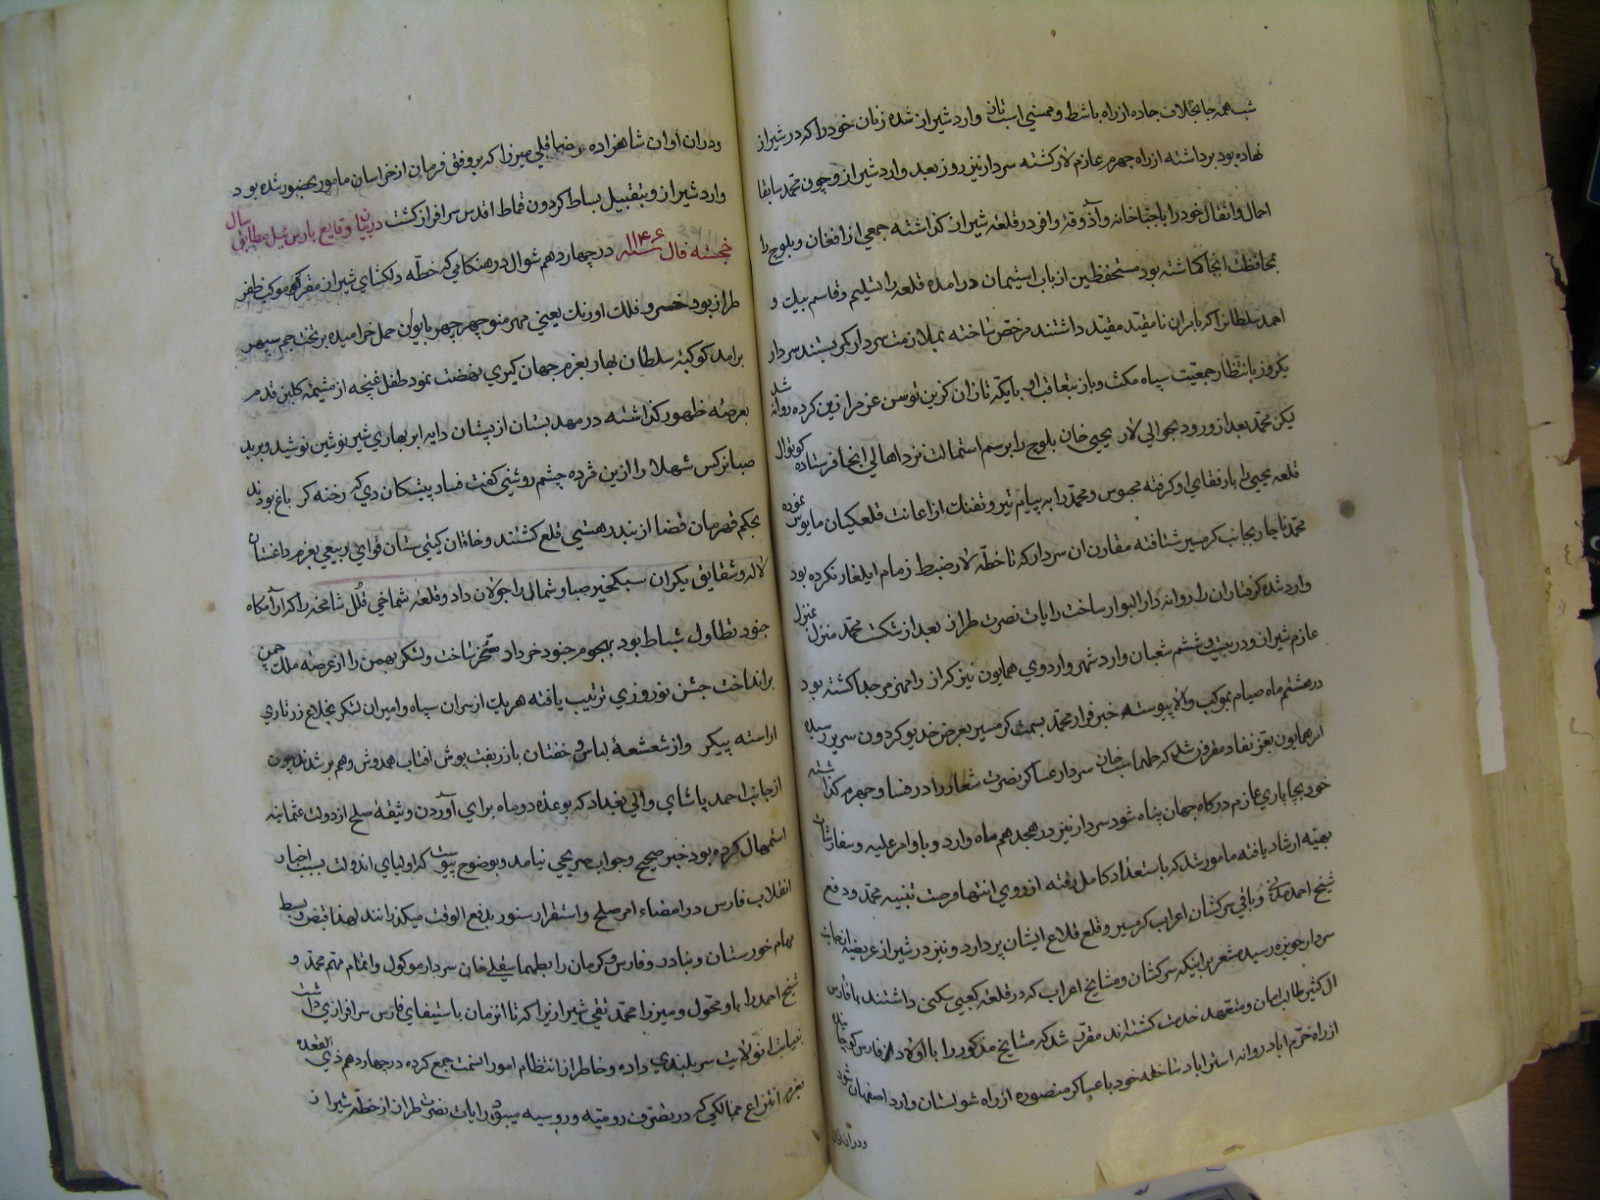 شب همه جا بخلاف جاده از راه باشط و ممسنی استانی وارد شیراز شده زنان خود را که در شیراز
نهاده بود برداشته از راه جهرم عازم لار کشته سردار نیز روز بعد وارد شیراز و چون محمد سابقا
احمال و اثقال خود را با جبّاخانه و آذوقهٔ وافر در قلعهٔ شیراز کذاشته جمعی از افغان و بلوچ را
بمحافظت انجا کماشته بود مستحفظین از باب استیمان درامده قلعه را تسلیم و قاسم بیک و
احمد سلطانرا که بامران نامقیّد مقیّد داشتند مرخص ساخته بملازمت سردار کمر بستند سردار
یکروز بانتظار جمعیت سپاه مکث و باز بتعاقب او با یکه تازان کزین توسن عزم را زین کرده روانه شد
لیکن محمد بعد از ورود بحوالی لار یحیی خان بلوچ را برسم استمالت نزد اهالی انجا فرستاده کوتوال
قلعه یحیی را با رفقای او کرفته محبوس و محمد را به پیام تیر و تفنک از اعانت قلعکیان مایوس نموده
محمد ناچار بجانب کرمسیر شتافته مقارن ان سردار که تا خطّه لار ضبط زمام ایلغار نکرده بود
وارد شده کرفتاران را روانه دارالبوار ساخت رایات نصرت طراز بعد از شکست محمد منزل بمنزل
عازم شیراز و در بیست و ششم شعبان وارد شهر و اردوی همایون نیز که از رامهرمز جدا کشته بود
در هشتم ماه صیام بموکب والا پیوسته خبر فرار محمد بسمت کرمسیر بعرض خدیو کردون سریر رسیده
امر همایون بعزّ نفاذ مقرون شد که طهماسب خان سردار عساکر نصرت شعار را در فسا و جهرم کذاشته
خود بچاپاری عازم درکاه جهان پناه شود سردار نیز در هجدهم ماه وارد و با اوامر علیه و سفارشات
بهیّه ارشاد یافته مامور شد که با استعداد کامل رفته از روی انتهاز فرصت بتنبیه محمد و دفع
شیخ احمد مدنی و باقی سرکشان اعراب کرمسیر و قلع قلاع ایشان پردازد و نیز در شیراز عریضه از جانب
سردار حویزه رسید مشعر بر اینکه سرکشان و مشایخ اعراب که در قلعه کعبی سکنی داشتند با فارس
ال کثیر طالب امان و متعهد خدمت کشته اند مقرّر شد که مشایخ مذکور را با اولاد از فارس کوچانیده
از راه خرّم اباد روانه استراباد ساخته خود با عساکر منصوره از راه شولستان وارد اصفهان شود
ودران اوان
ودران اوان شاهزاده رضا قلی میرزا که بر وفق فرمان از خراسان مامور بحضور شده بود
وارد شیراز و بتقبیل بساط کردون قماط اقدس سرافراز کشت در بیان وقایع بارس ئیل مطابق سال
خجسته فال ۱۱۴۶ در چهاردهم شوال در هنکامی که خطّه دلکشای شیراز مقرّ کوکبه موکب ظفر
طراز بود خسرو فلک اورنک یعنی مهر منوچهر چهر بایوان حمل خرامیده بر تخت جم سپهر
برامد کوکبهٔ سلطان بهار بعزم جهان کیری نهضت نمود طفل غنچه از مشیمهٔ کلبن قدم
بعرصهٔ ظهور کذاشته در مهد بستان از پستان دایه ابر بهاری شیر نوشین نوشید و برید
صبا نرکس شهلا را ازین مژده چشم روشنی کفت فساد پیشکان دی که رخنه کر باغ بودند
بحکم قهرمان قضا از بندر هستی قلع کشتند و خاقان کیتی ستان قوای ربیعی بعزم داغستان
لاله و شقایق یکران سبکخیز صبا و شمال را جولان داد و قلعهٔ شماخی قلل شامخه را که ارامکاه
جنود تطاول شباط بود بهجوم جنود خرداد مسخّر ساخت و لشکر بهمن را از عرصهٔ ملک چمن
برانداخت جشن نوروزی ترتیب یافته هر یک از سران سپاه و امیران لشکر بخلاع زرتاری
اراسته پیکر و از شعشعهٔ لباس و خفتان بازربفت پوش افتاب همدوش و هم بر شدند چون
از جانب احمد پاشای والی بغداد که بوعدهٔ دو ماه برای آوردن وثیقهٔ صلح از دولت عثمانیه
استمهال کرده بود خبر صحیح و جواب صریحی نیامد و بوضوح پیوست که اولیای اندولت بسبب اخبار
انقلاب فارس در امضاء امر صلح و استقرار سنور بدفع الوقت میکذرانند لهذا قبض و بسط
مهام خوزستان و بنادر و فارس و کرمان را بطهماسبقلی خان سردار موکول و اتمام مهم محمد و
شیخ احمد را باو محوّل و میرزا محمد تقی شیرازیرا که تا انزمان باستیفای فارس سرافرازی داشت
بنیابت انولایت سربلندی داده و خاطر از انتظام امور انسمت جمع کرده در چهاردهم ذی القعده
بعزم انتزاع ممالکی که در تصرف رومیّه و روسیه میبود رایات نصرت طراز از خطّه شیراز